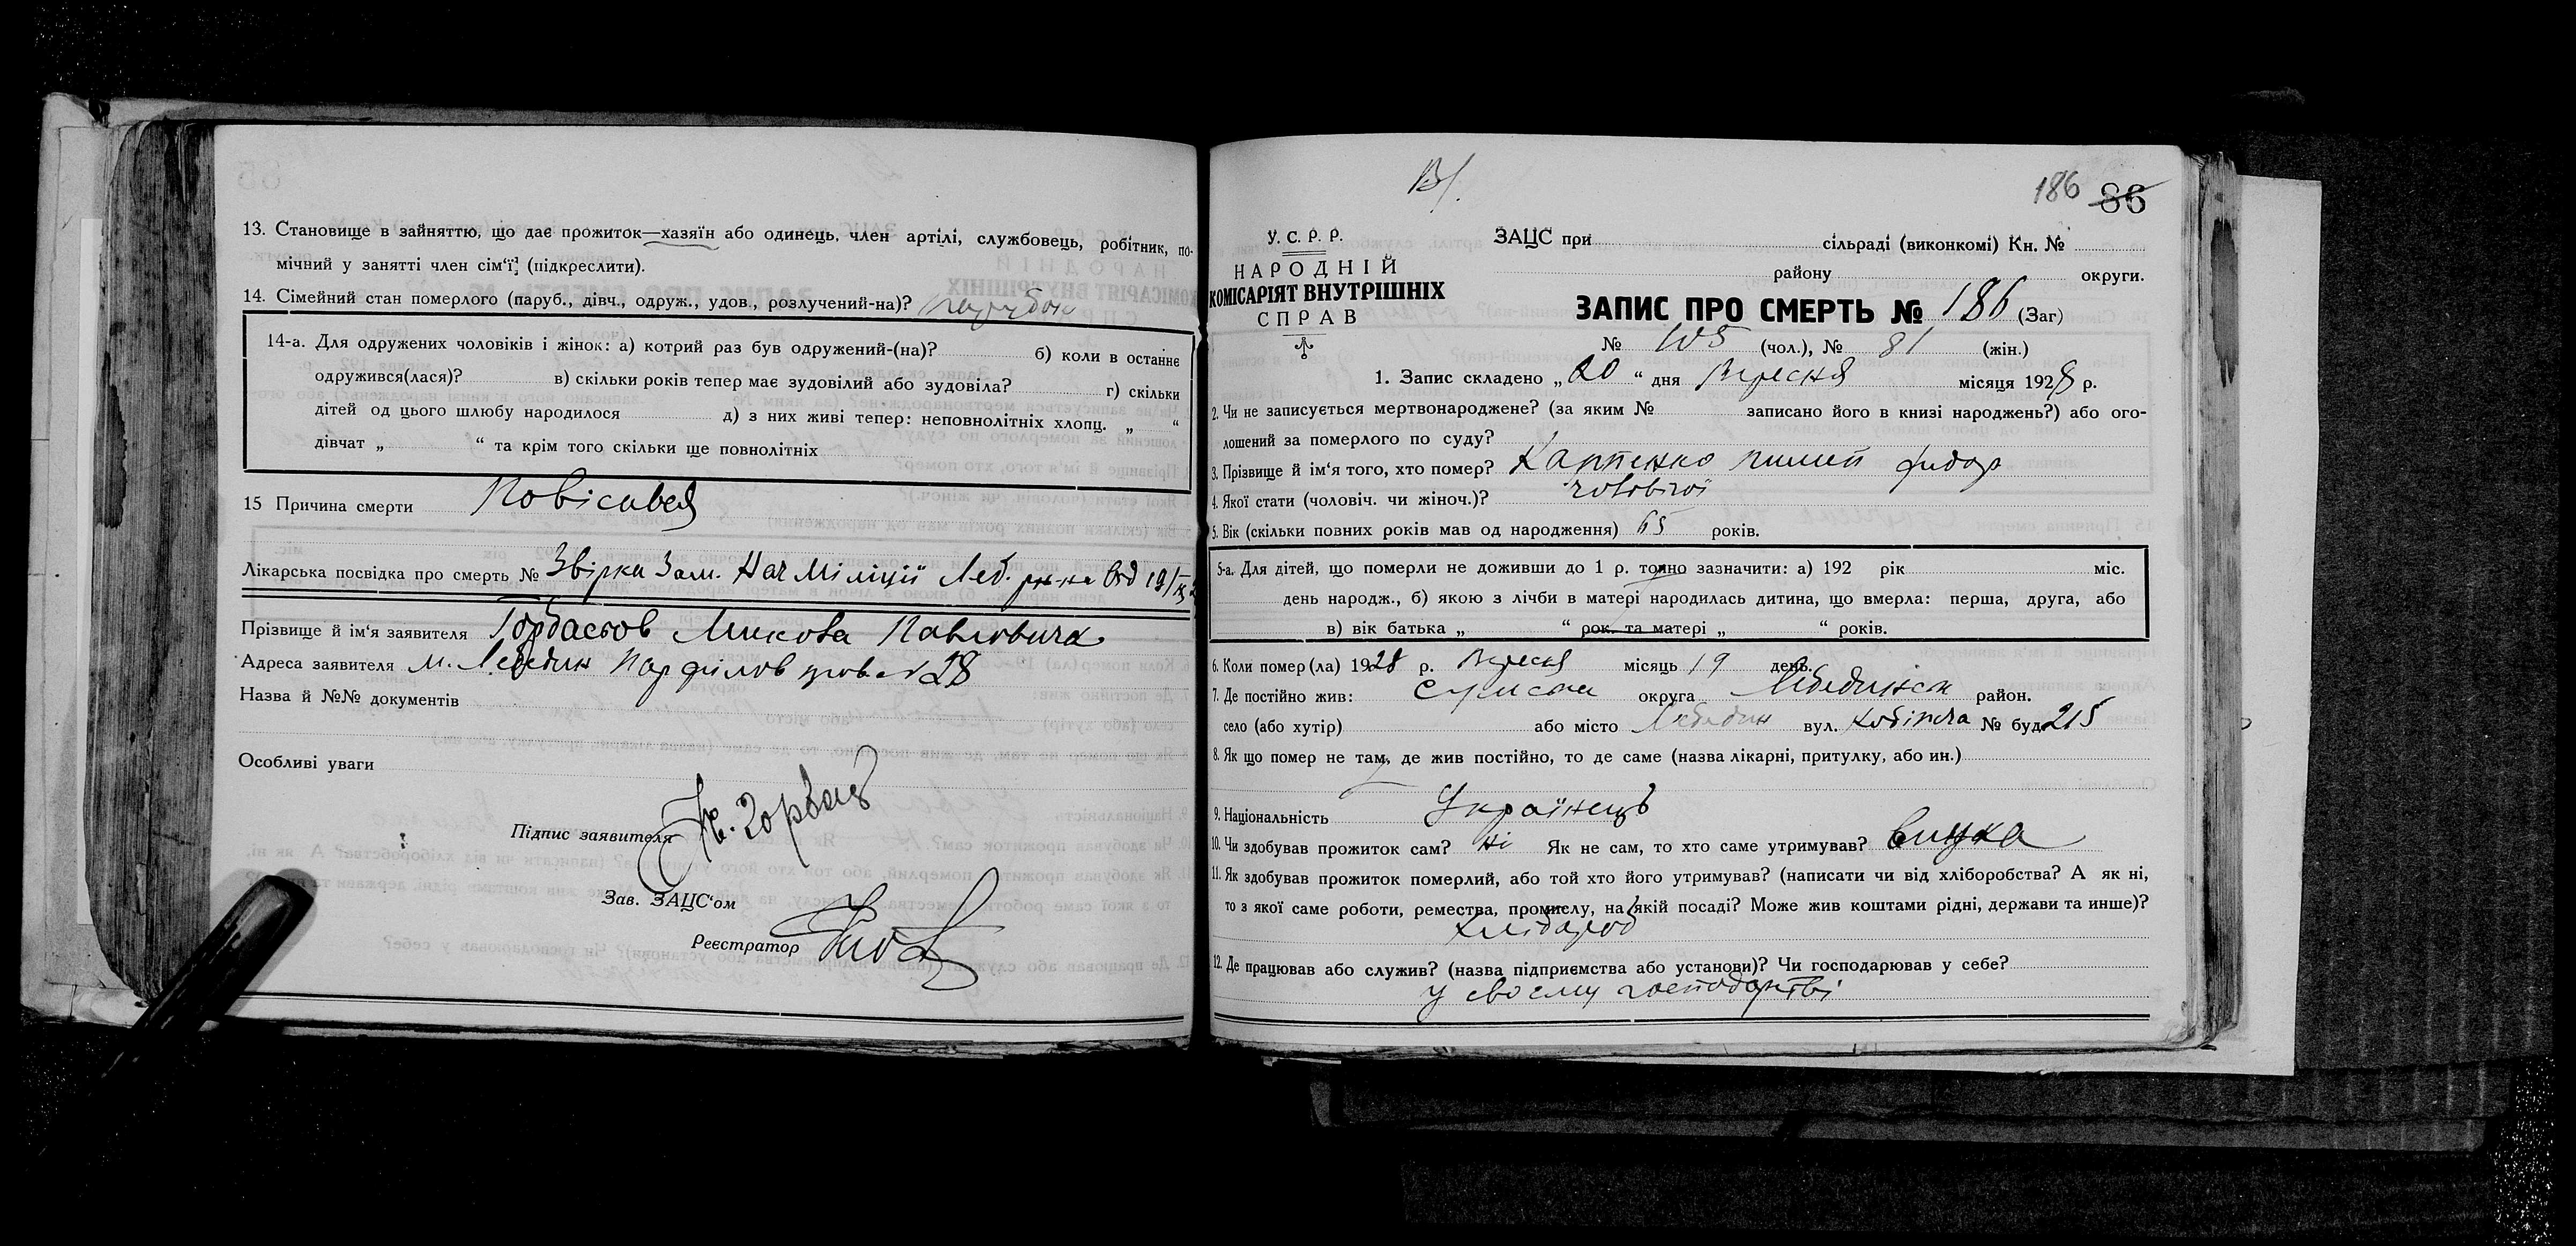 13. Становище в зайняттю, що дає прожиток—хазяїн або одинець, член артілі, службовець, робітник, по-
мічний у занятті член сім'ї (підкреслити).
14. Сімейний стан померлого (паруб., дівч., одруж., удов., розлучений-на)? парубок
14-а. Для одружених чоловіків і жінок: а) котрий раз був одружений-(на)? б) коли в останнє
одружився(лася)? в) скільки років тепер має зудовілий або зудовіла? г) скільки
дітей од цього шлюбу народилося д) з них живі тепер: неповнолітніх хлопц. „ “
дівчат „ “ та крім того скільки ще повнолітніх
15 Причина смерти Повісився
Лікарська посвідка про смерть № Звірка Зам. Нач Міліції Леб. р-на від 19/IX
Прізвище й ім'я заявителя Микола Павлович
Адреса заявителя м. Лебедин 28
Назва й №№ документів
Особливі уваги
Підпис заявителя
Зав. ЗАЦС'ом
Реєстратор
В/.
186 86
У. С. Р. Р.
НАРОДНІЙ
КОМІСАРІЯТ ВНУТРІШНІХ
СПРАВ
ЗАЦС при сільраді (виконкомі) Кн. №
району округи.
ЗАПИС ПРО СМЕРТЬ № 186 (Заг)
№ 105 (чол.), № 81 (жін.)
1. Запис складено „20“ дня Вересня місяця 1928 р.
2. Чи не записується мертвонароджене? (за яким № записано його в книзі народжень?) або ого-
лошений за померлого по суду?
3. Прізвище й ім'я того, хто помер? Карпенко Пилип Фидор
4. Якої стати (чоловіч. чи жіноч.)? чоловічої
5. Вік (скільки повних років мав од народження) 65 років.
5-а. Для дітей, що померли не доживши до 1 р. точно зазначити: а) 192 рік міс.
день народж., б) якою з лічби в матері народилась дитина, що вмерла: перша, друга, або
в) вік батька „ “ рок. та матері „ “ років.
6. Коли помер(ла) 1928 р. Вересня місяць 19 день.
7. Де постійно жив: Сумська округа Лебединськ район.
село (або хутір) або місто Лебедин вул. Кобижча № буд. 215
8. Як що помер не там, де жив постійно, то де саме (назва лікарні, притулку, або ин.)
9. Національність Українець
10. Чи здобував прожиток сам? Ні Як не сам, то хто саме утримував? внука
11. Як здобував прожиток померлий, або той хто його утримував? (написати чи від хліборобства? А як ні,
то з якої саме роботи, ремества, промислу, на якій посаді? Може жив коштами рідні, держави та инше)?
хлібороб
12. Де працював або служив? (назва підприємства або установи)? Чи господарював у себе?
у своєму господарстві